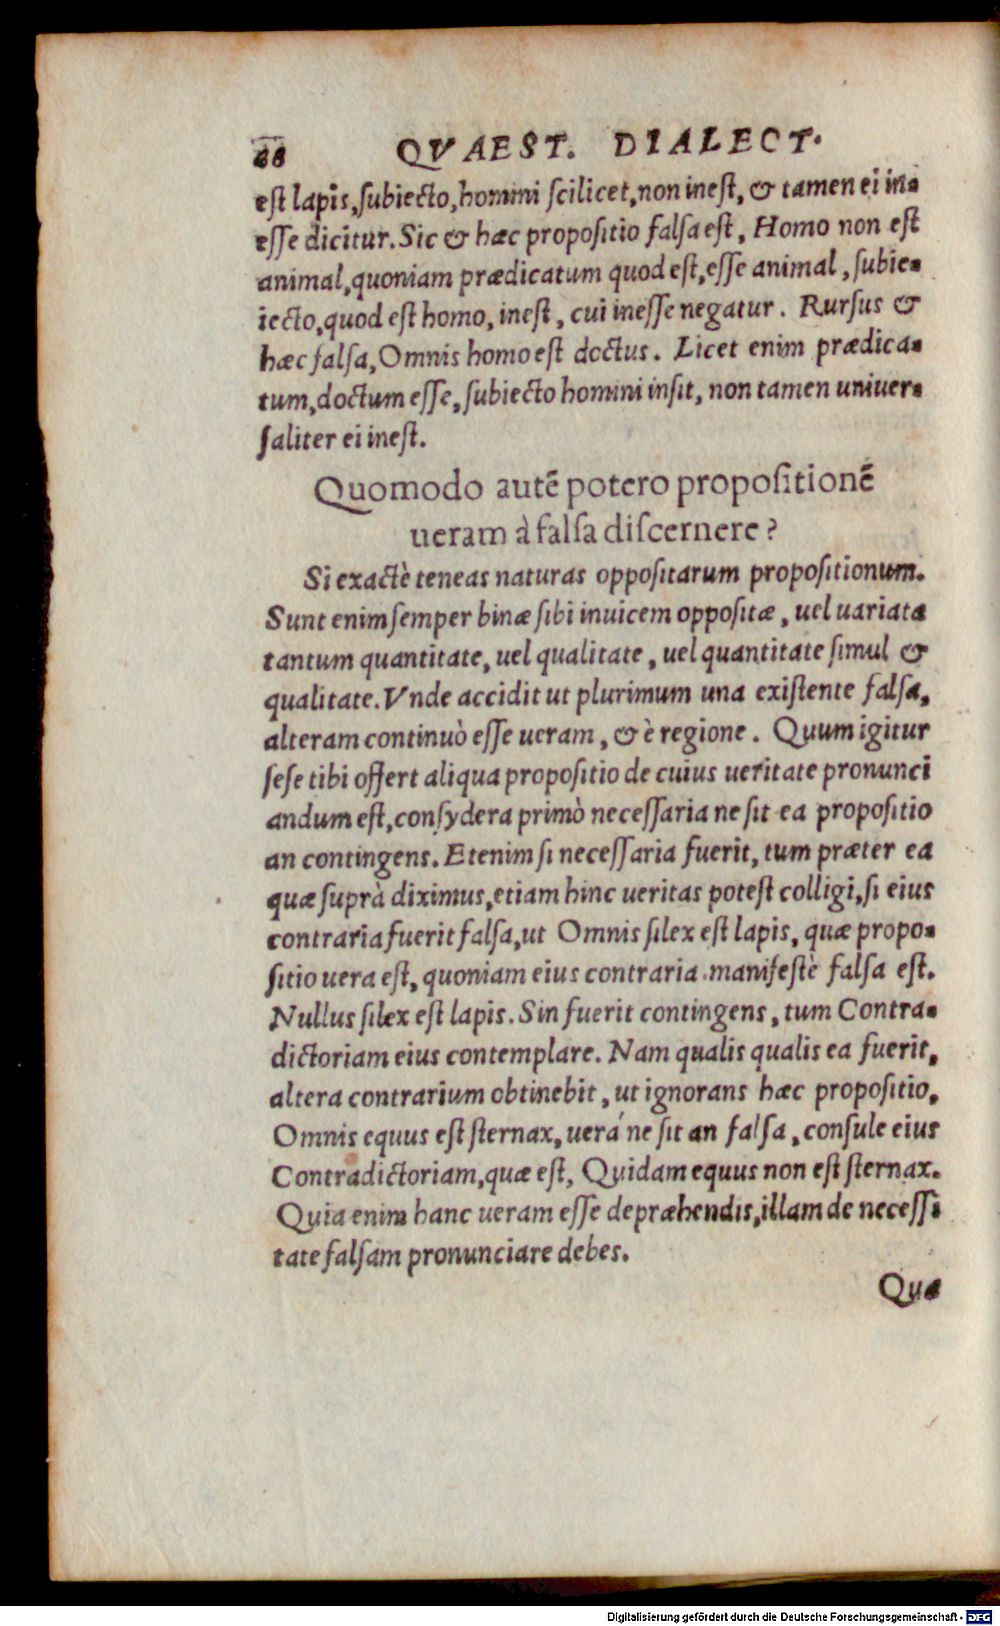 QVAEST. DIALECT.
est lapis, subiecto, homini scilicet, non inest, & tamen ei in-
esse dicitur. Sic & hæc propositio falsa est, Homo non est
animal, quoniam prædicatum quod est, esse animal, subie-
iecto, quod est homo, inest, cui inesse negatur. Rursus &
hæc falsa, Omnis homo est doctus. Licet enim prædica-
tum, doctum esse, subiecto homini insit, non tamen univer-
saliter ei inest.
Quomodo autẽ potero propositionẽ
ueram à falsa discernere?
Si exactè teneas naturas oppositarum propositionum.
Sunt enim semper binæ sibi inuicem oppositæ, uel uariata
tantum quantitate, uel qualitate, uel quantitate simul &
qualitate. Vnde accidit ut plurimum una existente falsa,
alteram continuò esse ueram, & è regione. Quum igitur
sese tibi offert aliqua propositio de cuius ueritate pronunci
andum est, consydera primò necessaria ne sit ea propositio
an contingens. Etenim si necessaria fuerit, tum præter ea
quæ suprà diximus, etiam hinc ueritas potest colligi, si eius
contraria fuerit falsa, ut Omnis silex est lapis, quæ propo-
sitio uera est, quoniam eius contraria manifestè falsa est.
Nullus silex est lapis. Sin fuerit contingens, tum Contra-
dictoriam eius contemplare. Nam qualis qualis ea fuerit,
altera contrarium obtinebit, ut ignorans hæc propositio,
Omnis equus est sternax, uerá ne sit an falsa, consule eius
Contradictoriam, quæ est, Quidam equus non est sternax.
Quia enim hanc ueram esse depræhendis, illam de necessi
tate falsam pronunciare debes.
Quæ
Digitalisierung gefördert durch die Deutsche Forschungsgemeinschaft - DFG